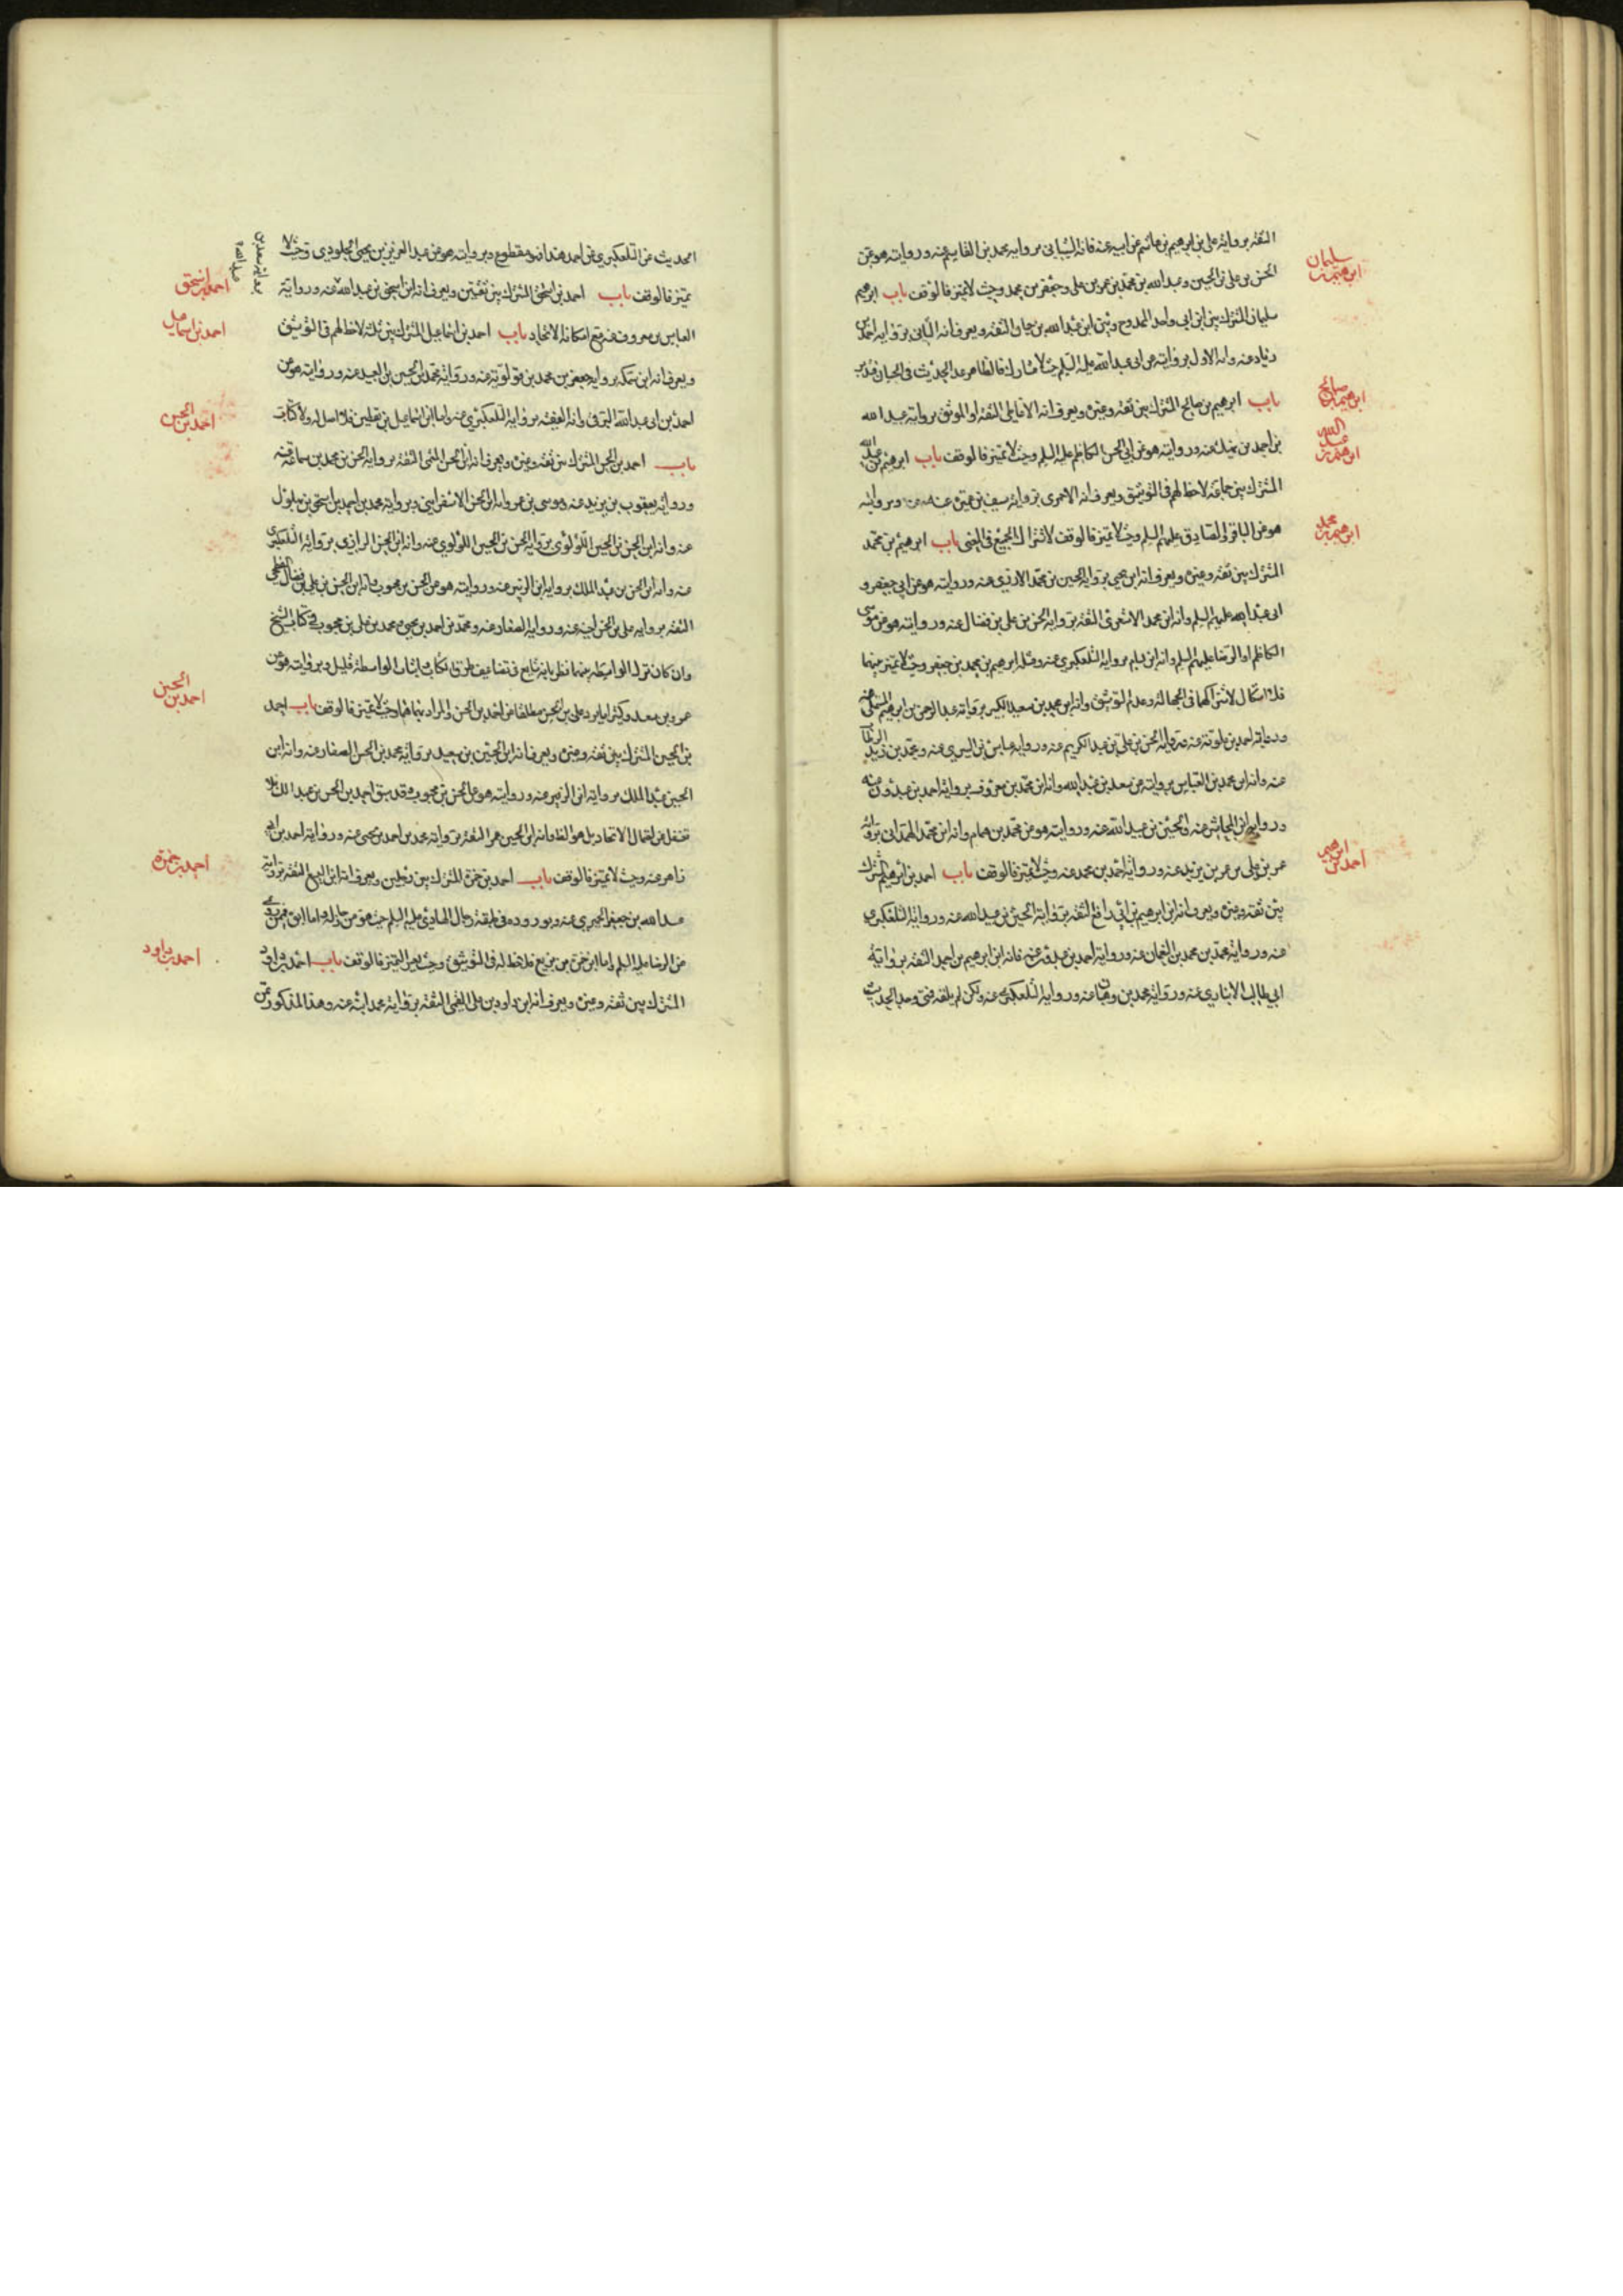 الثقة برواية علي بن ابرهيم بن هاشم عن ابيه عنه فانه الشيباني برواية محمد بن القاسم عنه وروايته هو عن
الحسن بن علي بن الحسين وعبد الله بن محمد بن عمر بن علي وجعفر بن محمد وحيث لا تميز فالوقف باب ابرهيم
سليمان
ابرهيم بن
سليمان المشترك بين ابن ابي واحد الممدوح وبين ابن عبد الله بن حيان الثقة ويعرف انه الثاني برواية احمد
زياد عنه وانه الاول بروايته عن ابي عبد الله عليه السلم حيث لا مشارك فالظاهر
باب ابرهيم بن صالح المشترك بين ثقة وغيره ويعرف انه الانماطي الثقة او الموثق برواية عبيد الله
ابرهيم بن صالح
بن احمد بن نهيك عنه وروايته هو عن ابي الحسن الكاظم عليه السلم وحيث لا تميز فالوقف باب ابرهيم بن عبد الله
ابرهيم بن عبد الله
المشترك بين جماعة لاحظ لهم في التوثيق ويعرف انه الاحمري برواية سيف بن عميرة عنه وبروايته
هو عن الباقر والصادق عليهما السلم وحيث لا تميز فالوقف لاشتراك الجميع في المعنى باب ابرهيم بن محمد
ابرهيم بن محمد
المشترك بين ثقة وغيره ويعرف انه ابن يحيى برواية الحسين بن محمد الازدي عنه وروايته هو عن ابي جعفر و
ابي عبد الله عليهم السلم وانه ابن محمد الاشعري الثقة برواية الحسن بن علي بن فضال عنه وروايته هو عن موسى
الكاظم او الرضا عليهما السلم وانه ابن برواية التلعكبري عنه ومثله ابرهيم بن محمد بن جعفر وحيث لا تميز بينهما
فلا اشكال لاشتراكهما في الجهالة وعدم التوثيق وانه ابن محمد بن سعيد برواية عبد الرحمن بن ابرهيم المستملي عنه
ورواية احمد بن علوية عنه ورواية الحسن بن علي بن عبد الكريم عنه ورواية عباس بن السري عنه ومحمد بن زيد الرطاب
عنه وانه ابن محمد بن العباس بروايته عن سعد بن عبد الله وانه ابن محمد بن معروف برواية احمد بن عبدون عنه
ورواية عنه والحسين بن عبيد الله عنه وروايته هو عن محمد بن همام وانه ابن محمد الهمداني برواية
عمر بن علي بن عمر بن يزيد عنه ورواية احمد بن محمد عنه وحيث لا تميز فالوقف باب احمد بن ابرهيم المشترك
احمد بن ابرهيم
بين ثقة وغيره ويعرف انه ابن ابرهيم بن ابي رافع الثقة برواية الحسين بن عبيد الله عنه ورواية التلعكبري
عنه ورواية محمد بن محمد بن النعمان عنه ورواية احمد بن عبدون عنه فانه ابن ابرهيم بن احمد الثقة برواية
ابي طالب الانباري عنه ورواية محمد بن وهبان عنه ورواية التلعكبري عنه ولكن لم يلقه
الحديث عن التلعكبري عن احمد هذا انه مقطوع وبروايته هو عن عبد العزيز بن يحيى الجلودي وحيث لا
برواية سعد بن عبد الله
تميز فالوقف باب احمد بن اسحق المشترك بين ثقتين ويعرف انه ابن اسحق بن عبد الله عنه ورواية
احمد بن اسحق
العباس بن معروف عنه مع امكان الاتحاد باب احمد بن اسماعيل المشترك بين ثلثة لاحظ لهم في التوثيق
احمد بن اسماعيل
ويعرف انه ابن سمكة برواية جعفر بن محمد بن قولويه عنه ورواية محمد بن الحسين بن العميد عنه وروايته هو عن
احمد بن ابي عبد الله البرقي وانه الفقيه برواية التلعكبري عنه واما ابن اسماعيل بن يقطين فلا اصل له ولا كتاب
باب احمد بن الحسن المشترك بين ثقة وغيره ويعرف انه ابن الحسن الميثمي الثقة برواية الحسن بن محمد بن سماعة عنه
احمد بن الحسن
ورواية يعقوب بن يزيد عنه وموسى بن عمر وانه ابن الحسن الاسفرايني وبرواية محمد بن احمد بن اسحق بن بهلول
عنه وانه ابن الحسن بن الحسين اللؤلؤي برواية الحسن بن الحسين اللؤلؤي عنه وانه ابن الحسن الرازي برواية التلعكبري
عنه وانه ابن الحسن بن عبد الملك برواية ابن الزبير عنه وروايته هو عن الحسن بن محبوب وانه ابن الحسن بن علي بن فضال الفطحي
الثقة برواية علي بن الحسن اخيه عنه ورواية الصفار عنه ومحمد بن احمد بن يحيى ومحمد بن علي بن محبوب في كتاب الشيخ
وان كان ترك الواسطة بينهما نظرا بانه شايع في تضاعيف طرق الكتاب اثبات الواسطة قليل وبروايته هو عن
عمرو بن سعيد وكثيرا ما يرد علي بن الحسن مطلقا عن احمد بن الحسن والمراد بهما هما وحيث لا تميز فالوقف باب احمد
احمد بن الحسين
بن الحسين المشترك بين ثقة وغيره ويعرف انه ابن الحسين بن سعيد برواية محمد بن الحسن الصفار عنه وانه ابن
الحسين بن عبد الملك برواية ابن الزبير عنه وروايته هو عن الحسن بن محبوب وقد سبق احمد بن الحسن بن عبد الملك فلا
تغفل عن احتمال الاتحاد بل هو الظاهر وانه ابن الحسين بن عمر الثقة برواية محمد بن احمد بن يحيى عنه ورواية احمد بن ابي
زاهر عنه وحيث لا تميز فالوقف باب احمد بن حمزة المشترك بين رجلين ويعرف انه ابن اليسع الثقة برواية
احمد بن حمزة
عبد الله بن جعفر الحميري عنه وبوروده في طبقة رجال الهادي عليه السلم حيث هو من رجاله واما ابوه فمن روى
عن الرضا عليه السلم واما ابن حمزة بن بزيع فلا حظ له في التوثيق وحيث يعسر التميز فالوقف باب احمد بن داود
احمد بن داود
المشترك بين ثقة وغيره ويعرف انه ابن داود بن علي القمي الثقة برواية محمد ابنه عنه وهذا المذكور عن